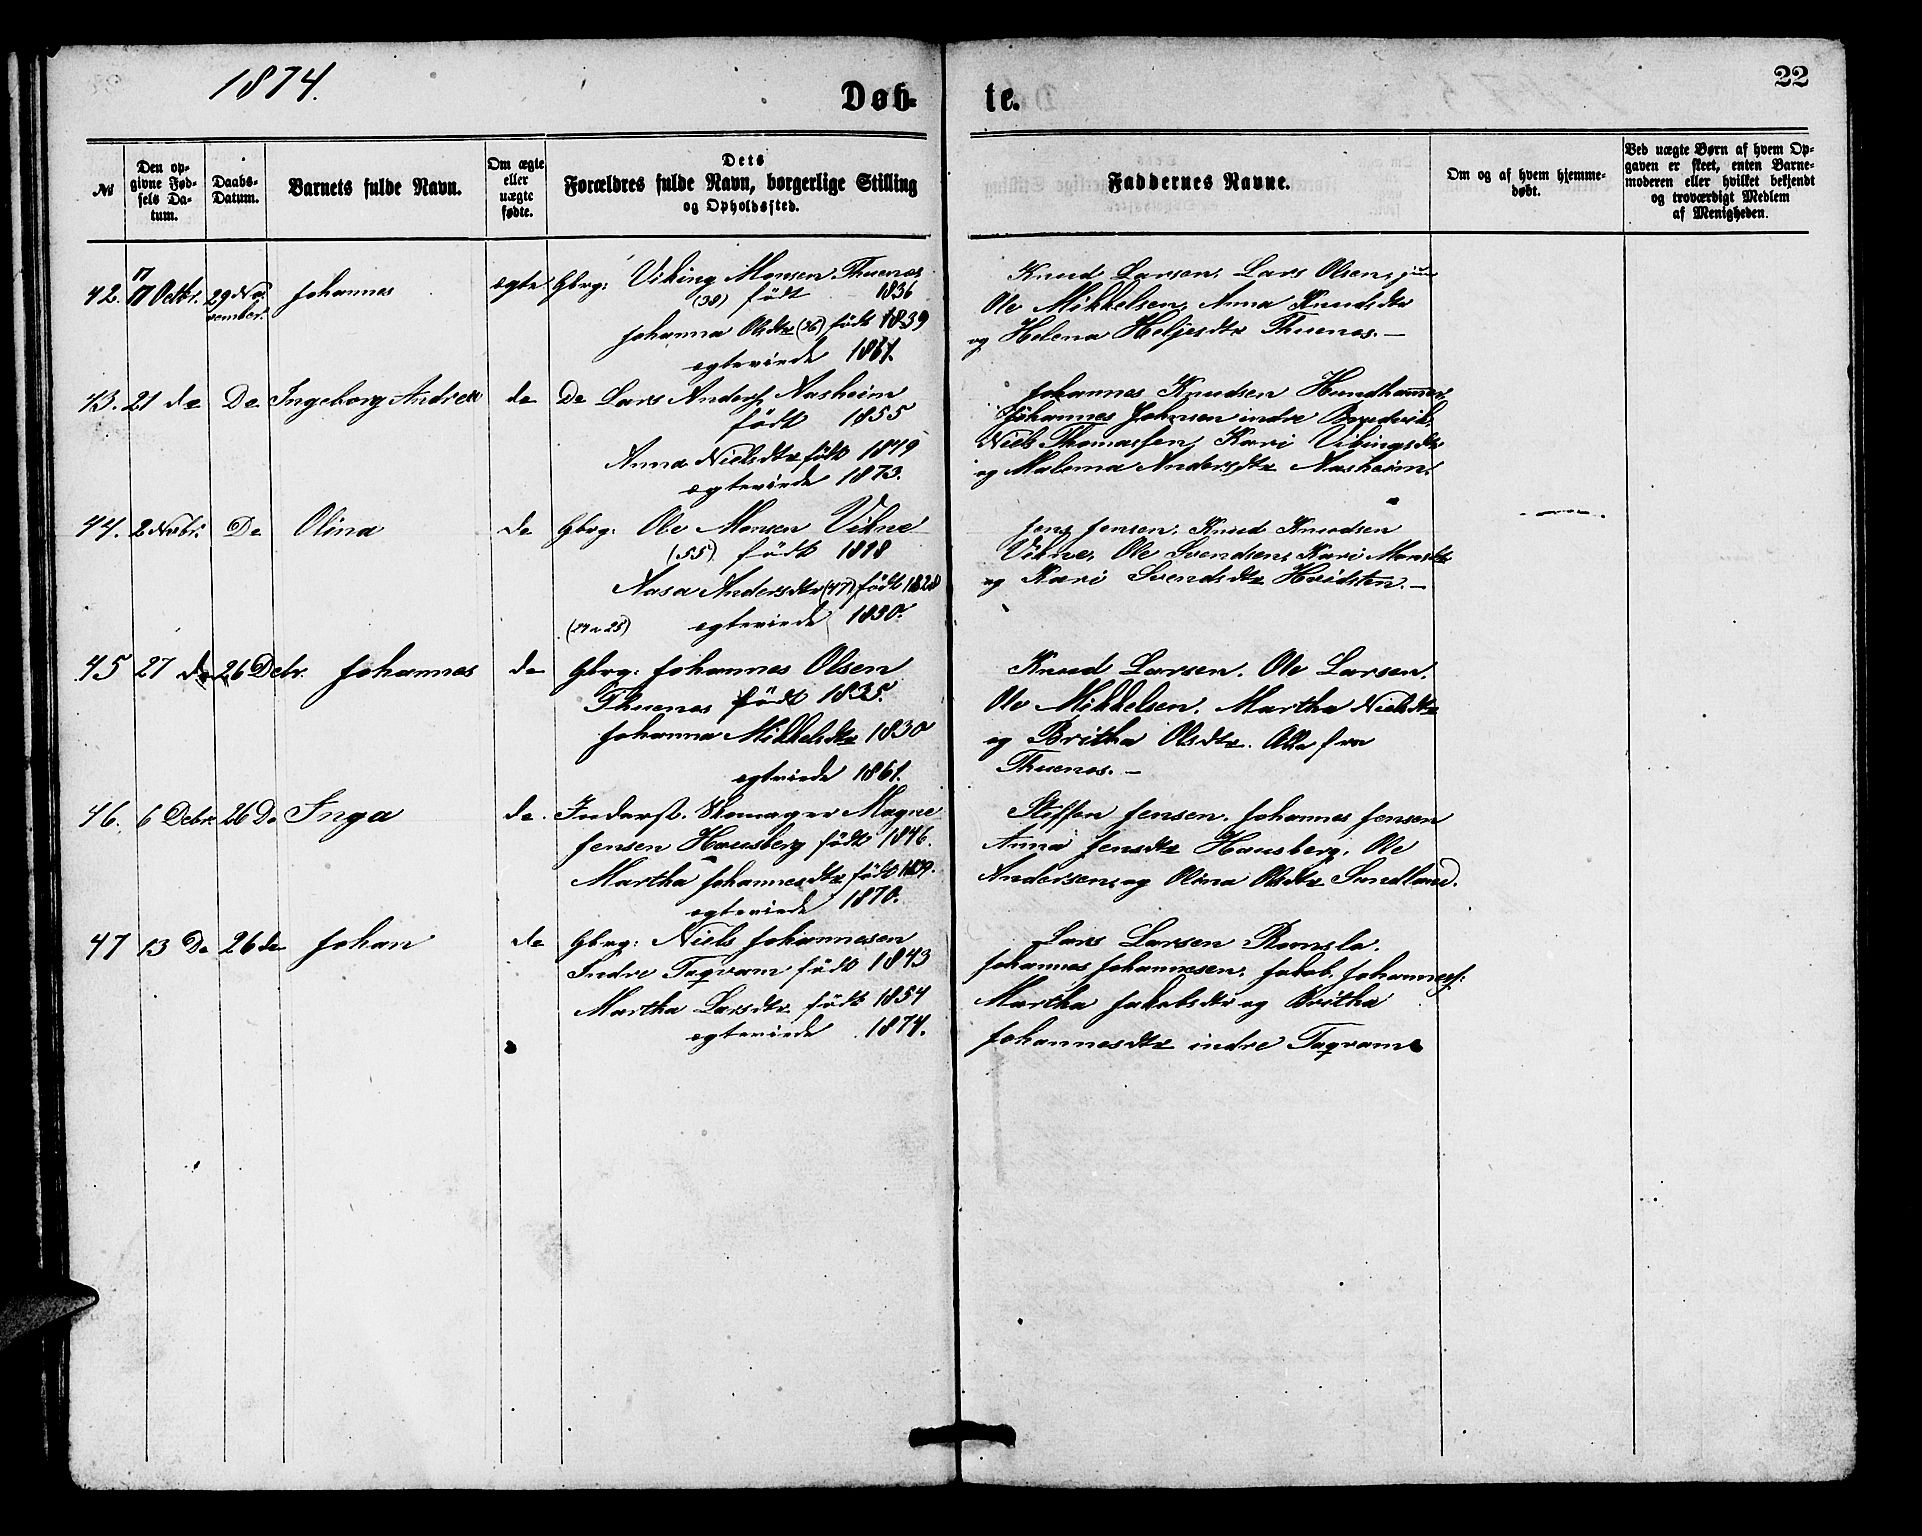 1874.
Døb-
te.
22
№
Den op-
givne Fød-
sels Da-
tum.
Daabs-
Datum.
Barnets fulde Navn.
Om ægte
eller
uægte
fødte.
Dets
Forældres fulde Navn, borgerlige Stilling
og Opholdssted.
Faddernes Navne.
Om og af hvem hjemme-
døbt.
Ved uægte Børn af hvem Op-
gaven er skeet, enten Barne-
moderen eller hvilket bekjendt
og troværdigt Medlem
af Menigheden.
42. 17 Octbr. 29 No-
vember. Johannes egte Gbrg: Viking Monsen Thuenes
(38) födt 1836
Johanna Olsdtr (36) födt 1839
egteviede 1861.
Knud Larsen, Lars Olsen,
Ole Mikkelsen, Anna Knudsdtr
og Helena Heljesdtr Thuenes.—
43. 21 de De Ingeborg Andrea de De Lars Anders. Aasheim
födt 1855
Anna Nielsdtr födt 1849
egteviede 1873.
Johannes Knudsen Hundhammer
Johannes Johnsen indre
Niels Thomassen, Kari Vikingsdtr
og Malema Andersdtr Aasheim.
44. 2 Novbr. De Olina de Gbrg: Ole Monsen Vikne
(55) födt 1818
Aasa Andersdtr (47) födt 1828
egteviede 1850.
Jens Jensen, Knud Knudsen
Vikne, Ole Svendsen, Kari Monsdtr
og Kari Svendsdtr Hvidsten.—
45 27 de 26 Debr. Johannes de Gbrg: Johannes Olsen
Thuenes födt 1835.
Johanna Mikkelsdtr 1830
egtviede 1861.
Knud Larsen. Ole Larsen.
Ole Mikkelsen. Martha Nielsdtr
og Britha Olsdtr. Alle fra
Thuenes.—
46. 6 Debr. 26 De Inga de. Inderst. Skomager Magne
Jensen Hausberg födt 1846.
Martha Johannesdtr födt
egteviede 1870.
Steffen Jensen. Johannes Jensen
Anna Jensdtr Hausberg. Ole
Andersen, og Olina Olsdtr Sundland.
47 13 De 26 de Johan de Gbrg: Niels Johannesen
Indre Taqvam födt 1843
Martha Larsdtr födt 1854
egteviede 1874.
Lars Larsen Romsla.
Johannes Johannesen, Jakob Johanness.
Martha Jakobsdtr og Britha
Johannesdtr indre Taqvam